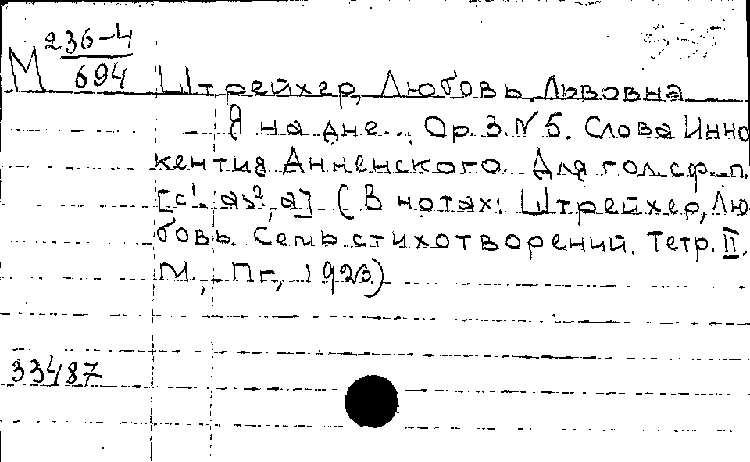 М 236-4
694
Штрейхер, Любовь Львовна
Я на дне... Ор. 3. № 5. Слова Инно
кентия Анненского. Для гол. с ф.-п.
[c¹-as², a] (В нотах: Штрейхер, Лю
бовь. Семь стихотворений. Тетр. II.
М., Пг., 1923)
33487